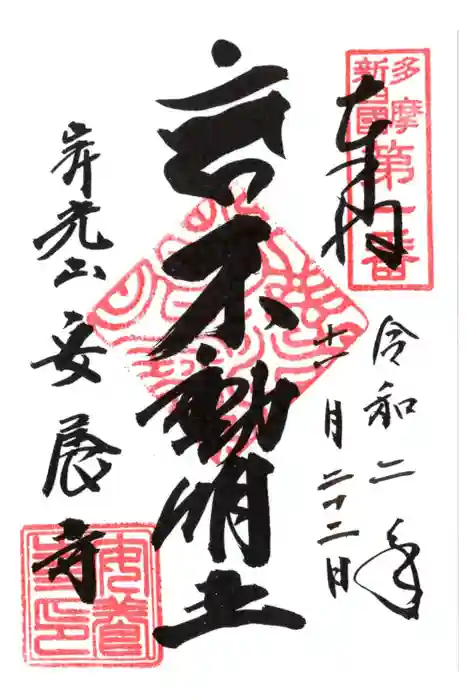 多摩
新四國
第一番
奉拝
令和二年
十一月二十二日
不動明王
光山 安養寺